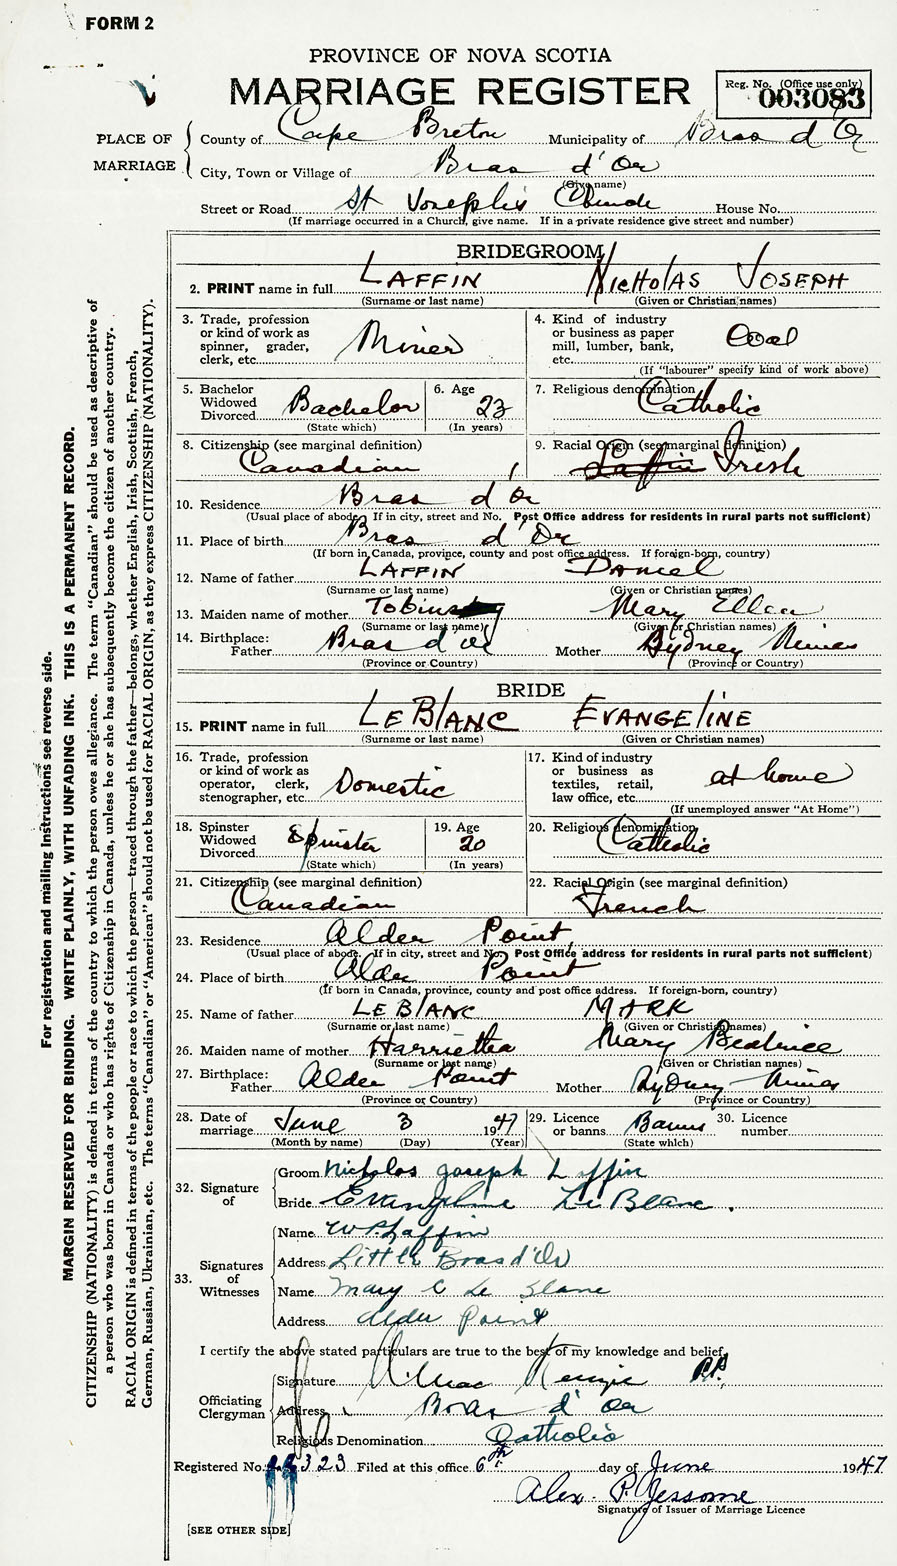 FORM 2
PROVINCE OF NOVA SCOTIA
MARRIAGE REGISTER
Reg. No. (Office use only)
003083
PLACE OF MARRIAGE
County of Cape Breton Municipality of Bras d'Or
City, Town or Village of Bras d'Or
(Give name)
Street or Road St Joseph's Church House No.
(If marriage occurred in a Church, give name. If in a private residence give street and number)
BRIDEGROOM
2. PRINT name in full LAFFIN NICHOLAS JOSEPH
(Surname or last name) (Given or Christian names)
3. Trade, profession or kind of work as spinner, grader, clerk, etc. Miner
4. Kind of industry or business as paper mill, lumber, bank, etc. Coal
(If "labourer" specify kind of work above)
5. Bachelor Widowed Divorced Bachelor
(State which)
6. Age 23
(In years)
7. Religious denomination Catholic
8. Citizenship (see marginal definition) Canadian
9. Racial Origin (see marginal definition) Laffin Irish
10. Residence Bras d'Or
(Usual place of abode. If in city, street and No. Post Office address for residents in rural parts not sufficient)
11. Place of birth Bras d'Or
(If born in Canada, province, county and post office address. If foreign-born, country)
12. Name of father LAFFIN DANIEL
(Surname or last name) (Given or Christian names)
13. Maiden name of mother Tobin Mary Ellen
(Surname or last name) (Given or Christian names)
14. Birthplace: Father Bras d'Or Mother Sydney Mines
(Province or Country) (Province or Country)
BRIDE
15. PRINT name in full LEBLANC EVANGELINE
(Surname or last name) (Given or Christian names)
16. Trade, profession or kind of work as operator, clerk, stenographer, etc. Domestic
17. Kind of industry or business as textiles, retail, law office, etc. at home
(If unemployed answer "At Home")
18. Spinster Widowed Divorced Spinster
(State which)
19. Age 20
(In years)
20. Religious denomination Catholic
21. Citizenship (see marginal definition) Canadian
22. Racial Origin (see marginal definition) French
23. Residence Alder Point
(Usual place of abode. If in city, street and No. Post Office address for residents in rural parts not sufficient)
24. Place of birth Alder Point
(If born in Canada, province, county and post office address. If foreign-born, country)
25. Name of father LEBLANC MARK
(Surname or last name) (Given or Christian names)
26. Maiden name of mother Harriettha Mary Beatrice
(Surname or last name) (Given or Christian names)
27. Birthplace: Father Alder Point Mother Sydney Mines
(Province or Country) (Province or Country)
28. Date of marriage June 3 1947
(Month by name) (Day) (Year)
29. Licence or banns Banns
(State which)
30. Licence number
32. Signature of
Groom Nicholas Joseph Laffin
Bride Evangeline LeBlanc.
33. Signatures of Witnesses
Name W P Laffin
Address Little Bras d'Or
Name Mary C Le Blanc
Address Alder Point
I certify the above stated particulars are true to the best of my knowledge and belief,
Officiating Clergyman
Signature Mac Kenzie P.P.
Address Bras d'Or
Religious Denomination Catholic
Registered No. 323 Filed at this office 6th day of June 1947
Alex. P. Jessome
Signature of Issuer of Marriage Licence
[SEE OTHER SIDE]
For registration and mailing instructions see reverse side.
MARGIN RESERVED FOR BINDING. WRITE PLAINLY, WITH UNFADING INK. THIS IS A PERMANENT RECORD.
CITIZENSHIP (NATIONALITY) is defined in terms of the country to which the person owes allegiance. The term "Canadian" should be used as descriptive of
a person who was born in Canada or who has rights of Citizenship in Canada, unless he or she has subsequently become the citizen of another country.
RACIAL ORIGIN is defined in terms of the people or race to which the person—traced through the father—belongs, whether English, Irish, Scottish, French,
German, Russian, Ukrainian, etc. The terms "Canadian" or "American" should not be used for RACIAL ORIGIN, as they express CITIZENSHIP (NATIONALITY).